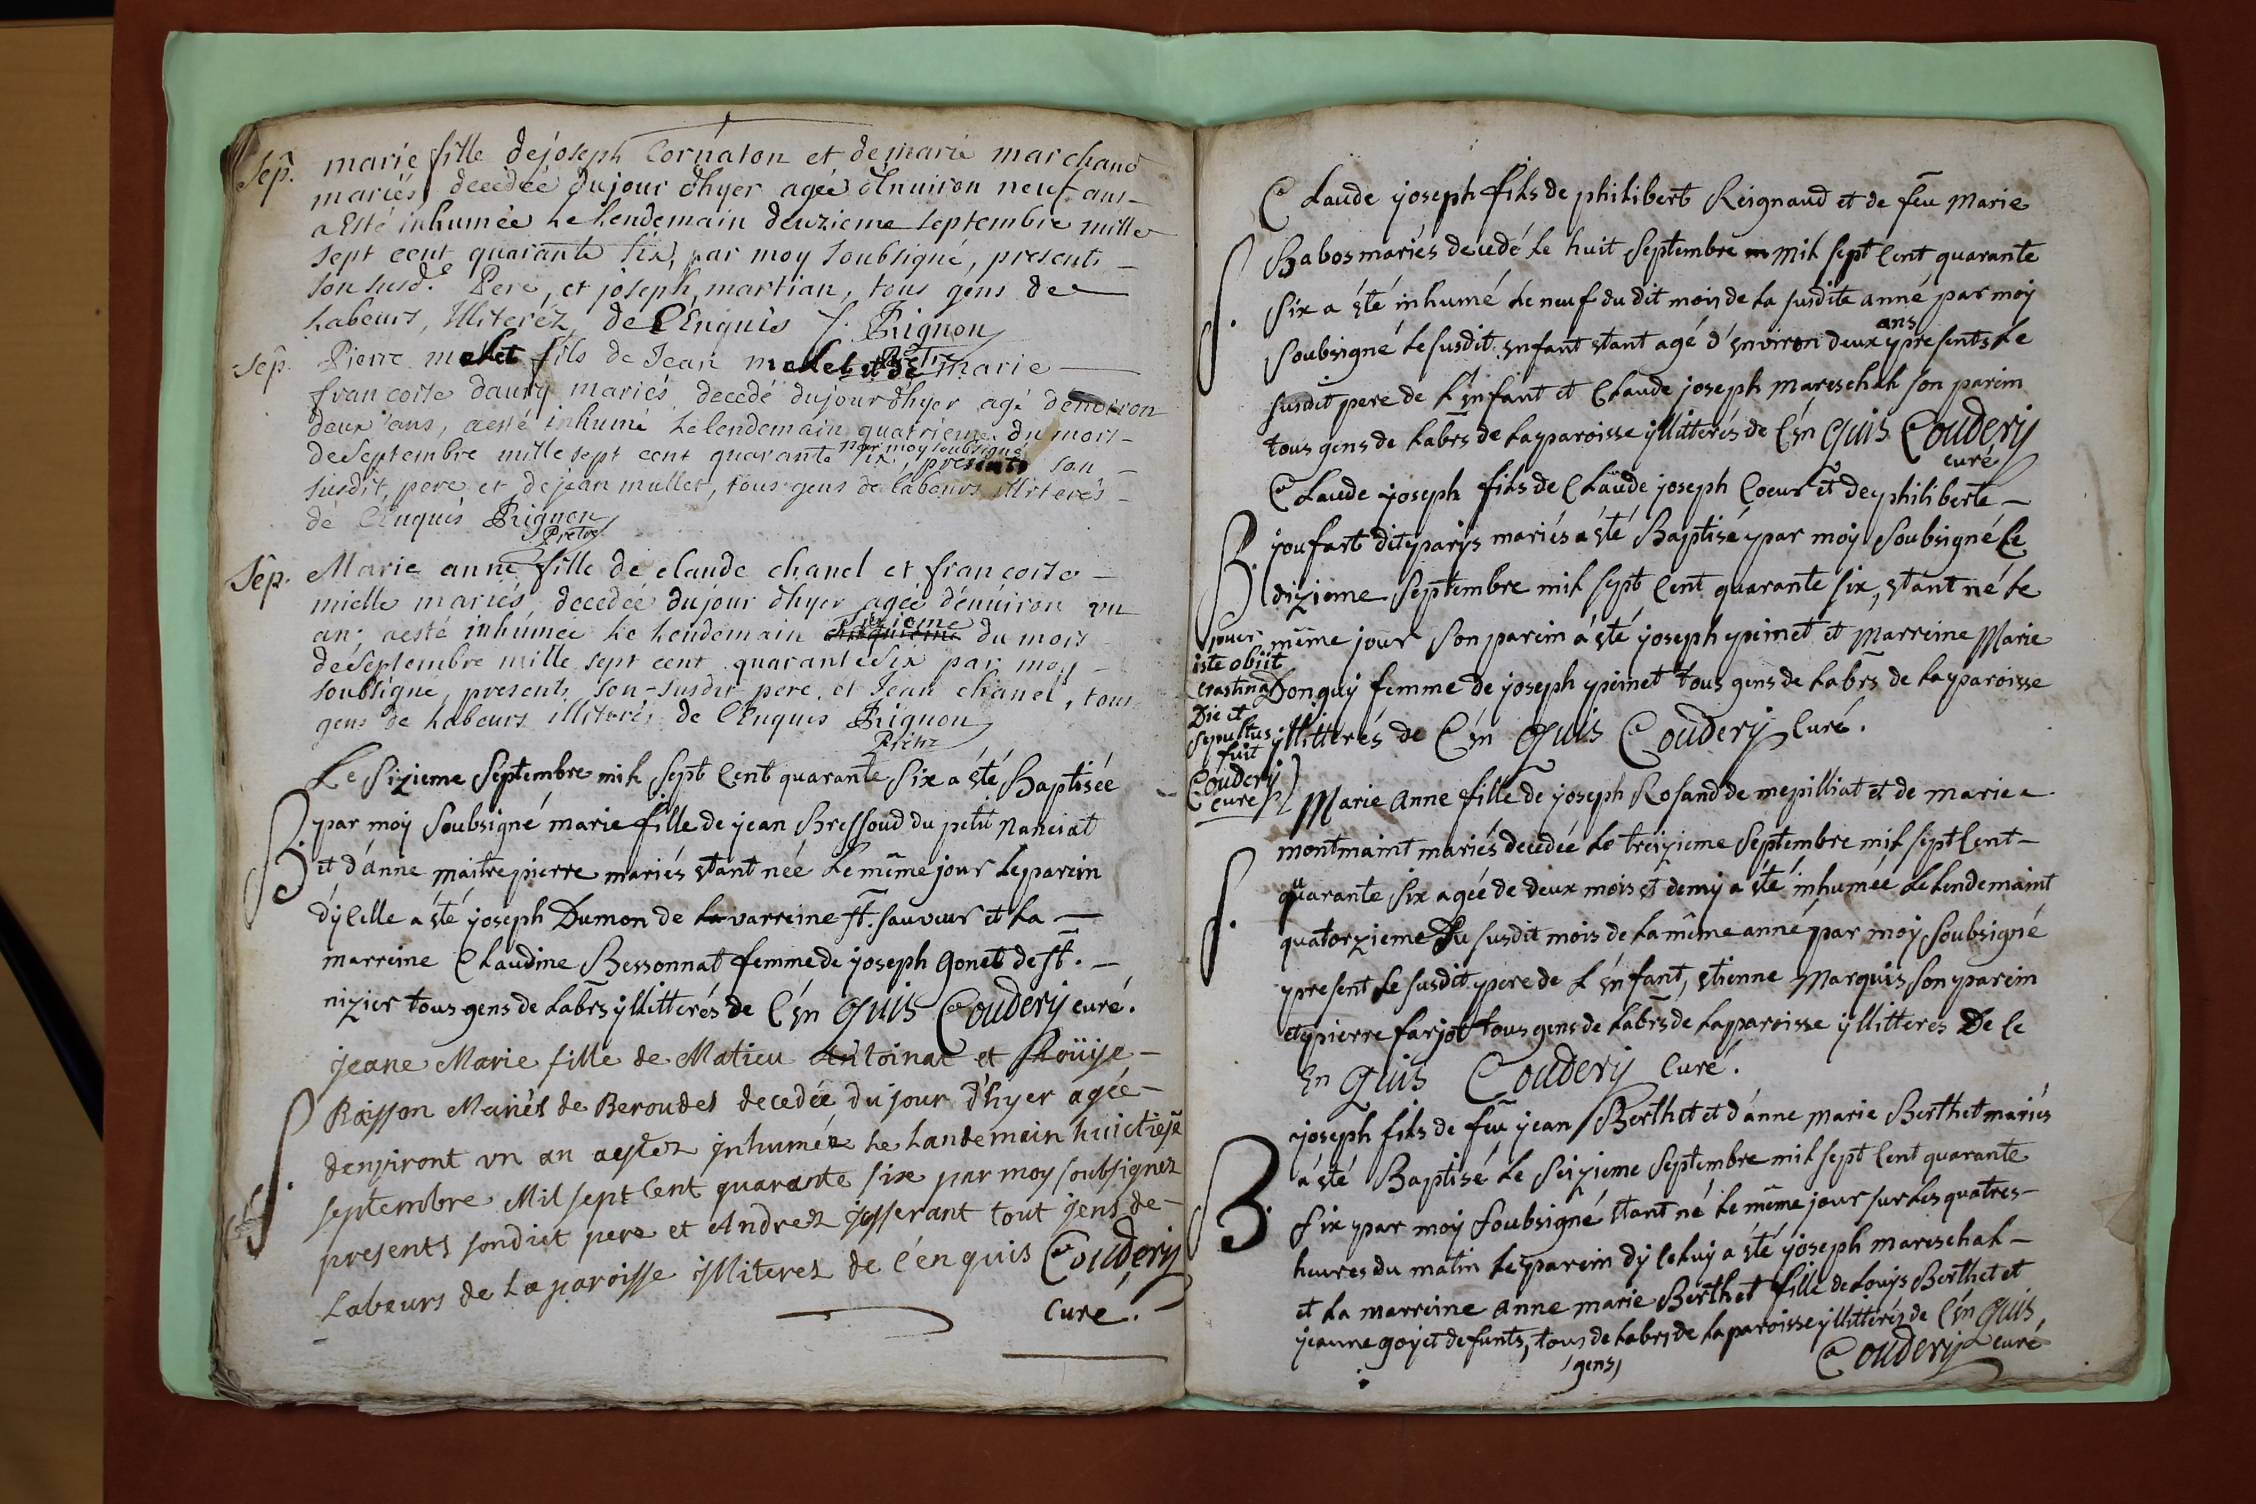 Sep. marie fille de joseph Cornaton et de marie marchand
mariés decedée du jour d'hyer agée d'Enuiron neuf ans
a Esté inhumée le Lendemain deuzieme septembre mille
sept cent quarante six, par moy soubsigné, presents
son susd.e Pere, et joseph martian, tous gens de
Labeurs, Illiteréz, de l'Enquis J. Rignon
Ptre
Sep. Pierre melet fils de Jean melet et de marie
francoise daury mariés decedé du jour d'hyer agé d'environ
deux ans, aesté inhumé le lendemain quatrieme du mois
par moy soubsigné
de septembre mille sept cent quarante six, presents son
susdit, pere et de jean mullet, tous gens de labeurs illiterés
de l'Enquis Rignon
Pretre
Sep. Marie anne fille de claude chanel et francoise
mielle mariés, decedée du jour d'hyer agée d'enuiron un
sixieme
an; aesté inhumée le lendemain cinquieme du mois
de septembre mille sept cent quarante six par moy
soubsigné, presents son susdit pere, et Jean chanel, tous
gens de Labeurs illiterés de l'Enquis Rignon
Pretre
Le sizieme septembre mil sept cent quarante six a été Baptisée
B. par moy soubsigné marie fille de jean Bressoud du petit Nanciat
et d'anne maitrepierre mariés étant née le même jour le parein
d'ycelle a été joseph Dumon de la varreine st. sauveur et la
marreine Claudine Bessonnat femme de joseph Gonet de st.
nizier tous gens de Labrs yllitterés de l'én Quis Coudery curé.
jeane Marie fille de Matieu Antoinat et Loüise
S. Raisson Mariés de Beroudes decedée du jour d'hyer agée
denviront un an aestez jnhumée le Landemain huictieme
septembre Mil sept Cent quarante sixe par moy soubsignez
presents sondict pere et Andrez josserant tout jens de
Labeurs de la paroisse jlliterez de l'énquis Coudery
Curé.
Claude joseph fils de philibert Reignaud et de feu Marie
S. Babos mariés decedé le huit septembre mil sept cent quarante
six a été inhumé le neuf du dit mois de la susdite anné par moy
ans
soubsigné le susdit enfant étant agé d'environ deux presents le
susdit pere de l'énfant et Claude joseph mareschal son parein
tous gens de Labrs de la paroisse yllitterés de l'én Quis Coudery
curé
Claude joseph fils de Claude joseph Coeur et de philiberte
B. joufart dit parys mariés a été Baptisé par moy soubsigné le
dizieme septembre mil sept cent quarante six, étant né le
même jour son parein a été joseph peinet et Marreine Marie
Donguy femme de joseph peinet tous gens de Labrs de la paroisse
yllitterés de l'én Quis Coudery Curé.
puer
iste obiit
crastina
Die et
sepultus
fuit
Coudery
curé
Marie Anne fille de joseph Rosand de mepilliat et de marie
montmaint mariés decedée le treizieme septembre mil sept cent
S. quarante six agée de deux mois et demy a été inhumée le lendemaint
quatorzieme Du susdit mois de la même anné par moy soubsigné
present le susdit pere de l'énfant, étienne Marquis son parein
et pierre farjot tous gens de Labrs de la paroisse yllitteres De le
én Quis Coudery Curé.
joseph fils de feu jean Berthet et d'anne marie Berthet mariés
B. a été Baptisé le seizieme septembre mil sept cent quarante
six par moy soubsigné étant né le même jour sur les quatres
heures du matin le parein d'yleluy a été joseph mareschal
et la marreine anne marie Berthet fille de Loüys Berthet et
jeanne goyet defunts, tous de Labrs de la paroisse yllitterés de l'én Quis
gens,
Coudery curé